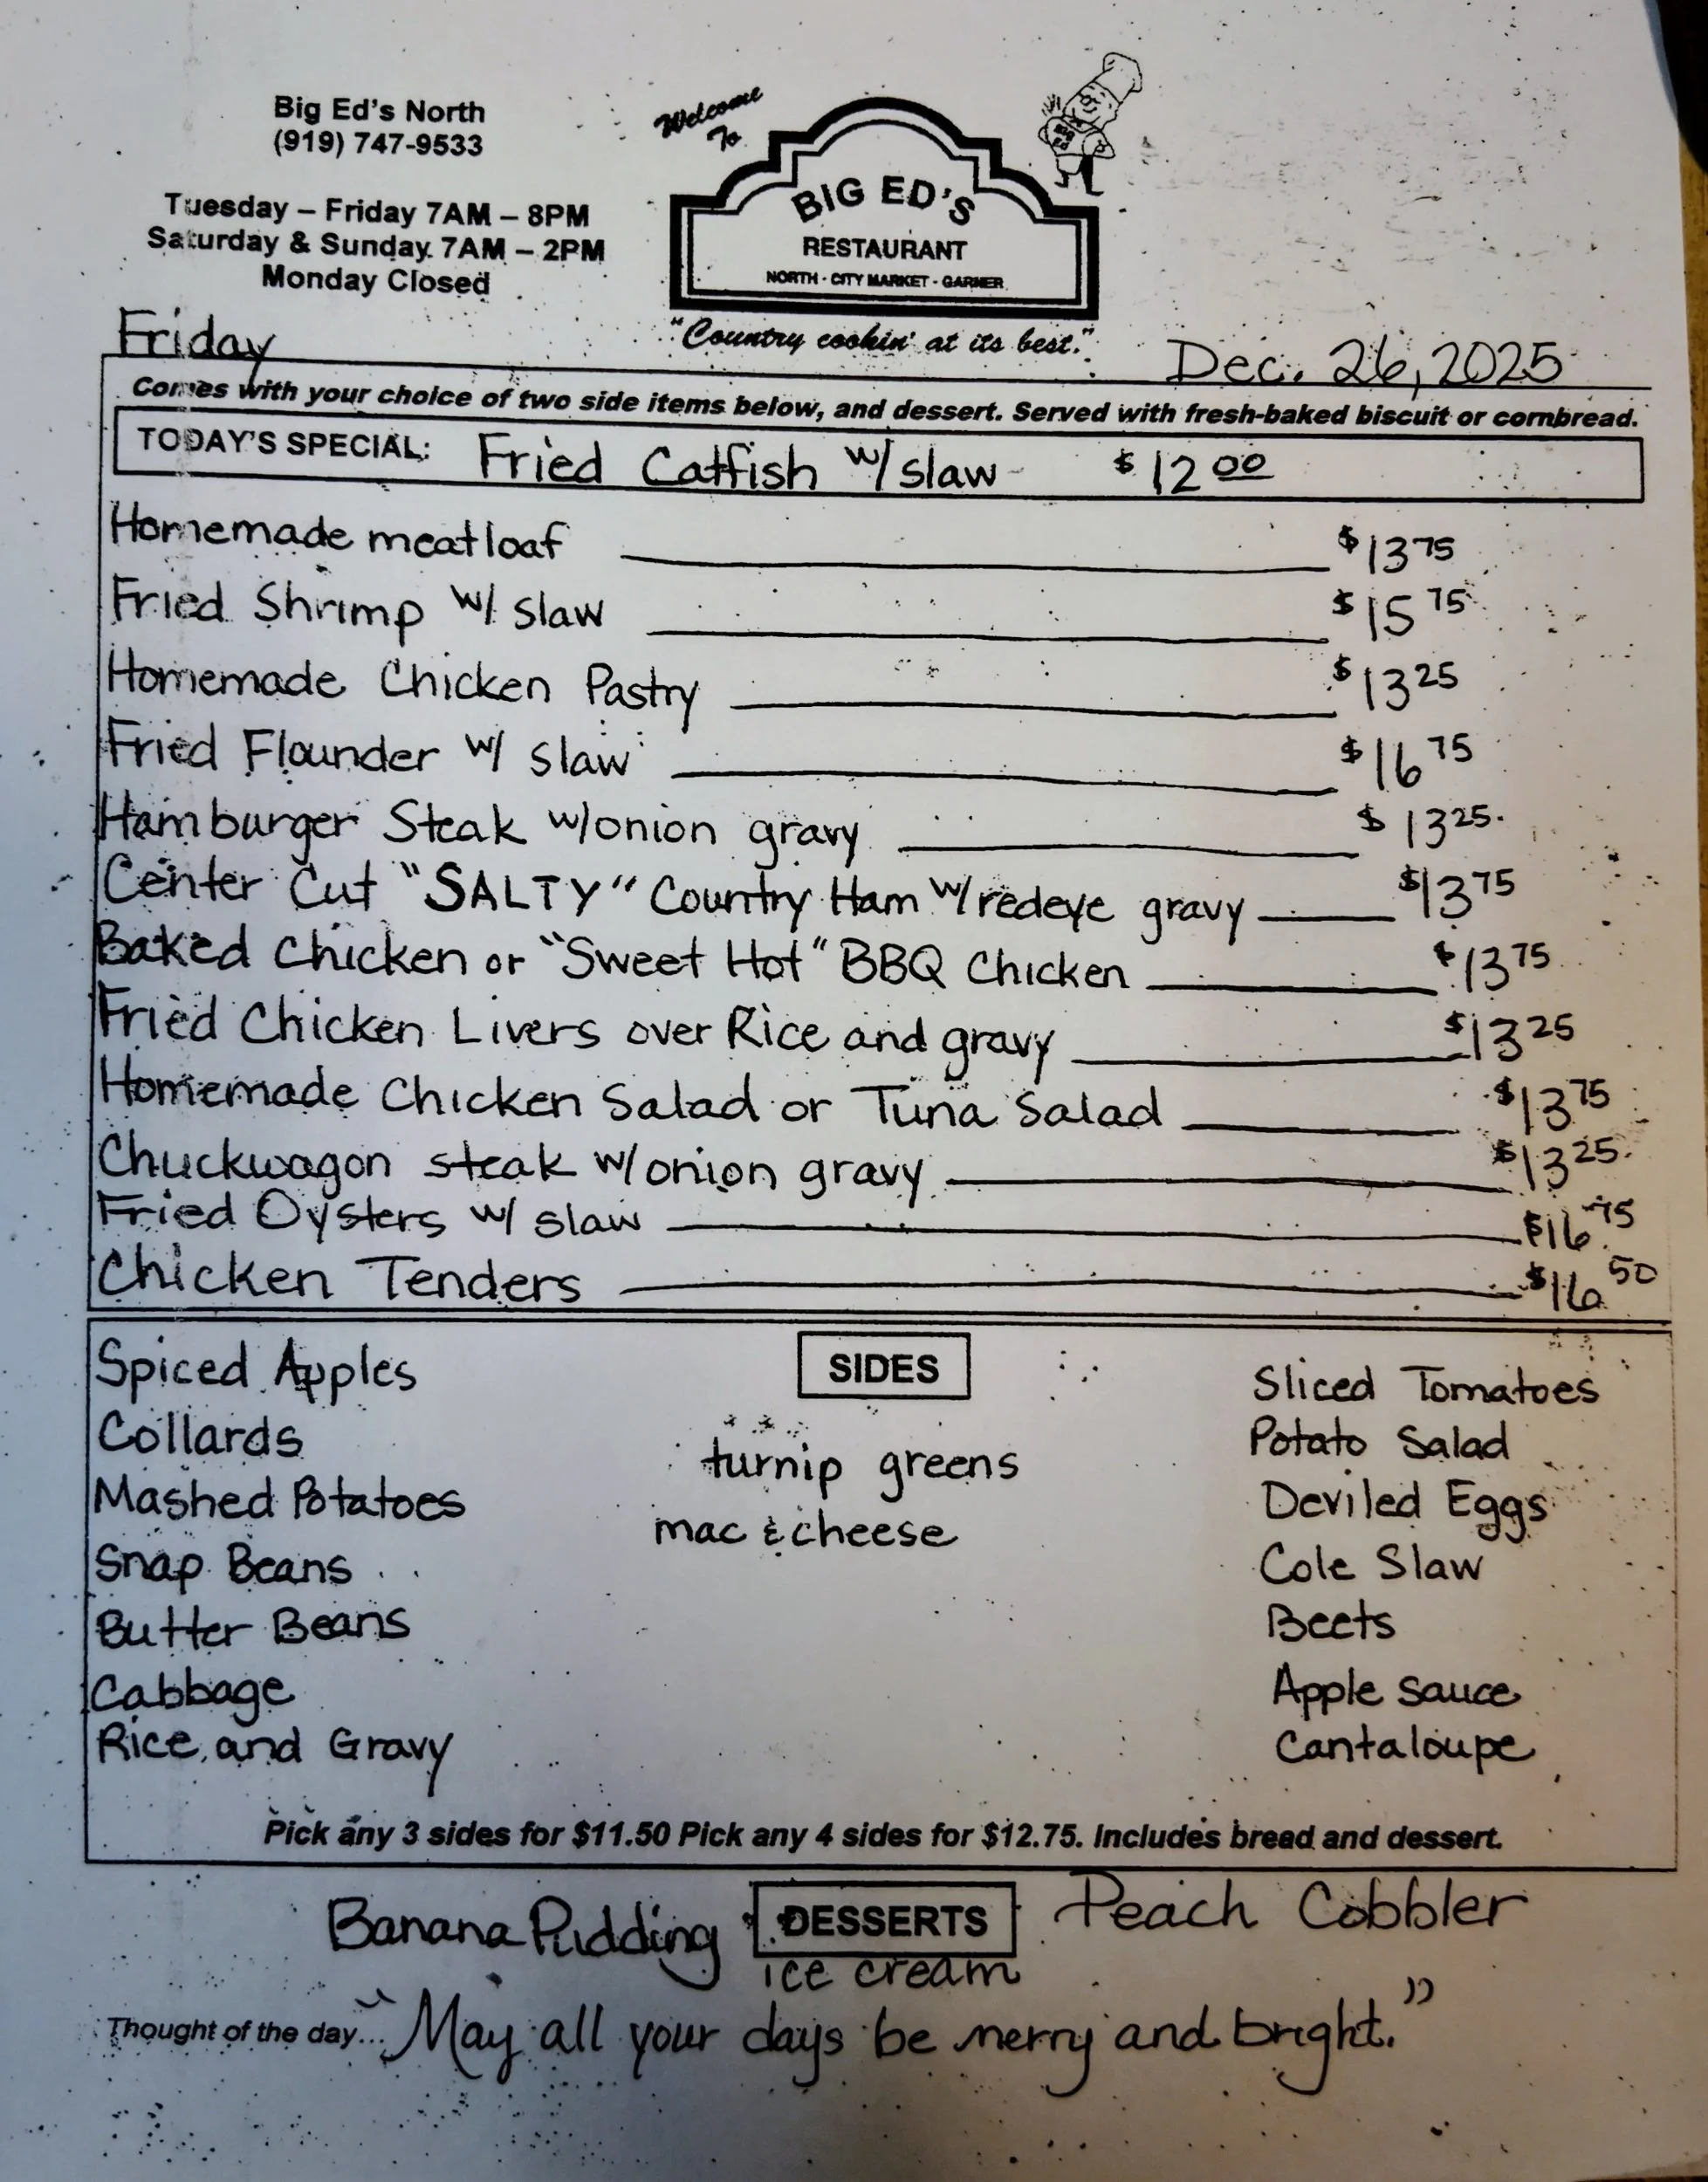 Big Ed's North
(919) 747-9533
Tuesday – Friday 7AM – 8PM
Saturday & Sunday 7AM – 2PM
Monday Closed
Welcome
To
BIG ED'S
RESTAURANT
NORTH - CITY MARKET - GARNER
Big
Ed
"Country cookin' at its best."
Friday
Dec. 26, 2025
Comes with your choice of two side items below, and dessert. Served with fresh-baked biscuit or cornbread.
TODAY'S SPECIAL: Fried Catfish w/ slaw $12.00
Homemade meatloaf $13.75
Fried Shrimp w/ slaw $15.75
Homemade Chicken Pastry $13.25
Fried Flounder w/ slaw $16.75
Hamburger Steak w/onion gravy $13.25
Center Cut "SALTY" Country Ham w/redeye gravy $13.75
Baked Chicken or "Sweet Hot" BBQ Chicken $13.75
Fried Chicken Livers over Rice and gravy $13.25
Homemade Chicken Salad or Tuna Salad $13.75
Chuckwagon steak w/onion gravy $13.25
Fried Oysters w/ slaw $16.75
Chicken Tenders $16.50
SIDES
Spiced Apples
Collards
Mashed Potatoes
Snap Beans
Butter Beans
Cabbage
Rice and Gravy
turnip greens
mac & cheese
Sliced Tomatoes
Potato Salad
Deviled Eggs
Cole Slaw
Beets
Apple Sauce
Cantaloupe
Pick any 3 sides for $11.50 Pick any 4 sides for $12.75. Includes bread and dessert.
Banana Pudding DESSERTS Peach Cobbler
ice cream
Thought of the day... "May all your days be merry and bright."